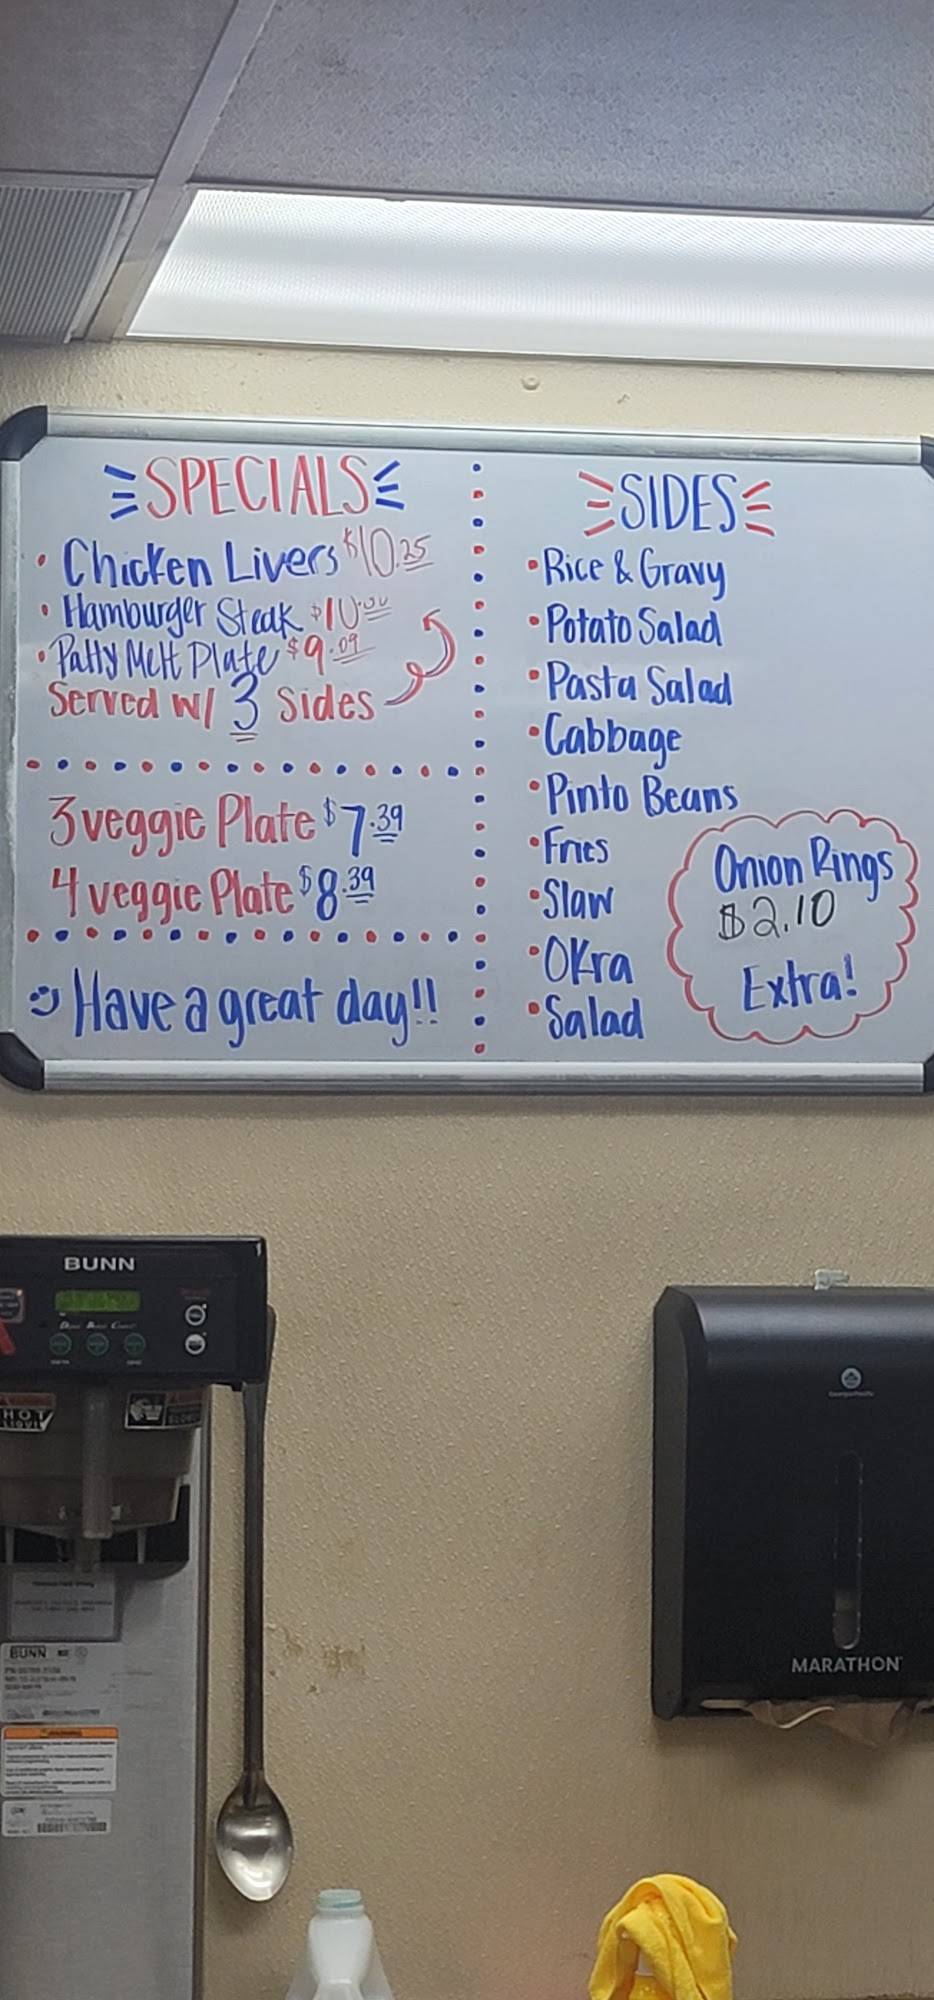 SPECIALS
• Chicken Livers $10.25
• Hamburger Steak $10.00
• Patty Melt Plate $9.09
Served w/ 3 Sides
3 veggie Plate $7.39
4 veggie Plate $8.39
Have a great day!!
SIDES
• Rice & Gravy
• Potato Salad
• Pasta Salad
• Cabbage
• Pinto Beans
• Fries
• Slaw
• Okra
• Salad
Onion Rings
$2.10
Extra!
BUNN
HOT
BUNN
MARATHON